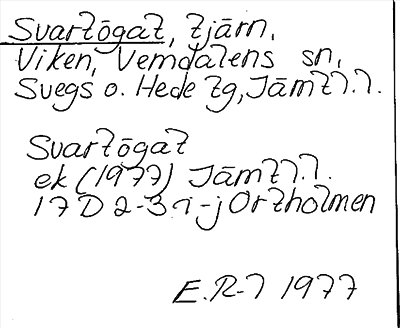 Svartögat, tjärn,
Viken, Vemdalens sn,
Svegs o. Hede tg, Jämtl.l.
Svartögat
ek (1977) Jämtl.l.
17D 2-3 i-j Örtholmen
E.R-l 1977